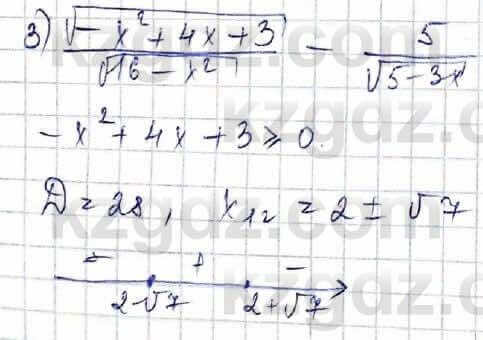 3) √(-x² + 4x + 3) / √(16 - x²) - 5 / √(5-3x)
-x² + 4x + 3 ⩾ 0.
D = 28, x₁₂ = 2 ± √7
- + -
2-√7 2+√7
kzgdz.com